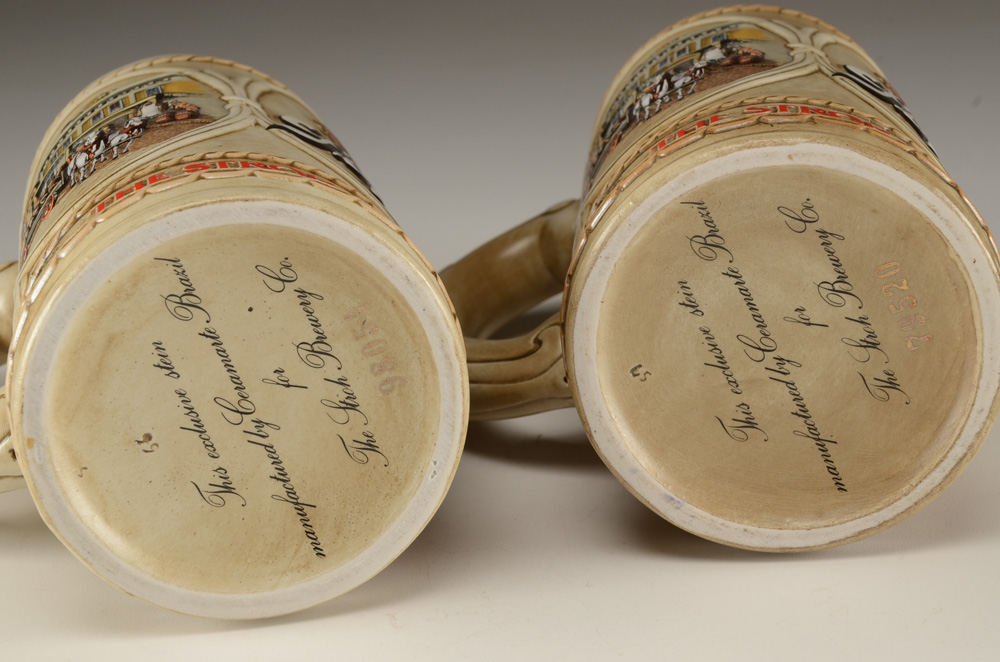 THE STRO
This exclusive stein
manufactured by Ceramarte Brazil
for
The Stroh Brewery Co.
THE STRO
This exclusive stein
manufactured by Ceramarte Brazil
for
The Stroh Brewery Co.